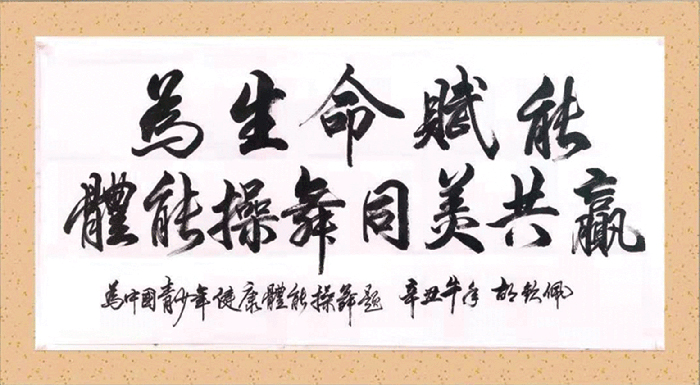 為生命賦能
體能操舞同美共贏
為中國青少年健康體能操舞题 辛丑牛年 胡